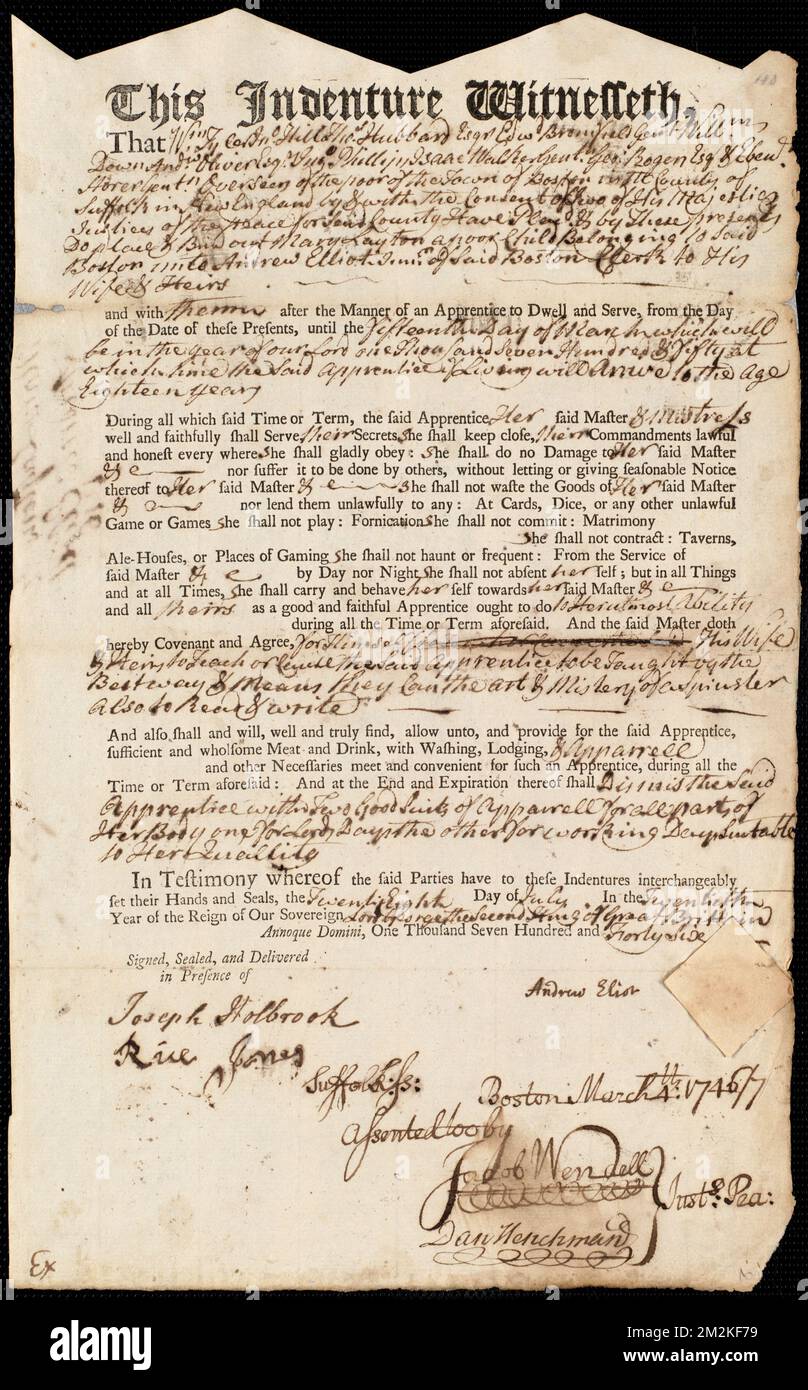 This Indenture Witnesseth,
That Wm Tyler Jno Hill Thos Hubbard Esqr Edwd Bromfield Gent Willm
Down Andw Oliver Esqr Jno Phillips Isaac Walker Gent Geo: Rogers Esqr & Ebenr
Storer Gent Overseers of the poor of the Town of Boston in the County of
Suffolk in New England by & with the Consent of two of His Majesties
Justices of the Peace for Said County Have Placd & by These presents
Do place & Bind out Mary Layton a poor Child Belonging to Said
Boston unto Andrew Elliot Junr. of Said Boston Clerk to His
Wife & Heirs
and with them after the Manner of an Apprentice to Dwell and Serve, from the Day
of the Date of these Presents, until the fifteenth Day of March which will
be in the year of our Lord one Thousand Seven Hundred & fifty at
which time the Said Apprentice if Living will Arrive to the age
Eighteen years
During all which said Time or Term, the said Apprentice Her said Master & Mistress
well and faithfully shall Serve their Secrets she shall keep close, their Commandments lawful
and honest every where she shall gladly obey: she shall do no Damage to Her said Master
& c nor suffer it to be done by others, without letting or giving seasonable Notice
thereof to Her said Master & c she shall not waste the Goods of Her said Master
& c nor lend them unlawfully to any: At Cards, Dice, or any other unlawful
Game or Games she shall not play: Fornication she shall not commit: Matrimony
she shall not contract: Taverns,
Ale-Houses, or Places of Gaming she shall not haunt or frequent: From the Service of
said Master & c by Day nor Night she shall not absent her self; but in all Things
and at all Times, she shall carry and behave her self towards her said Master & c
and all theirs as a good and faithful Apprentice ought to do to Her utmost Ability
during all the Time or Term aforesaid. And the said Master doth
hereby Covenant and Agree, for Himself His Wife
& Heirs to Teach or Cause the Said Apprentice to be Taught by the
Best way & Means they Can the art & Mistery of a Spinster
also to Read & write
And also shall and will, well and truly find, allow unto, and provide for the said Apprentice,
sufficient and wholsome Meat and Drink, with Washing, Lodging, & Apparrell
and other Necessaries meet and convenient for such an Apprentice, during all the
Time or Term aforesaid: And at the End and Expiration thereof shall Dismis the Said
Apprentice with Two Good Suits of Apparrell for all parts of
Her Body one for Lords Days the other for working Days Suitable
to Her Quallity
In Testimony whereof the said Parties have to these Indentures interchangeably
set their Hands and Seals, the Twenty Eight Day of July In the Twentieth
Year of the Reign of Our Sovereign Lord George the Second King of Great Brittain
Annoque Domini, One Thousand Seven Hundred and Forty Six
Signed, Sealed, and Delivered
in Presence of
Andrew Eliot
Joseph Holbrook
Rice Jones
Suffolk: ss: Boston March 4th: 1746/7
Assented to by
Jacob Wendell
Justs. Pea:
Dan Henchman
Ex
alamy
Image ID: 2M2KF79
www.alamy.com